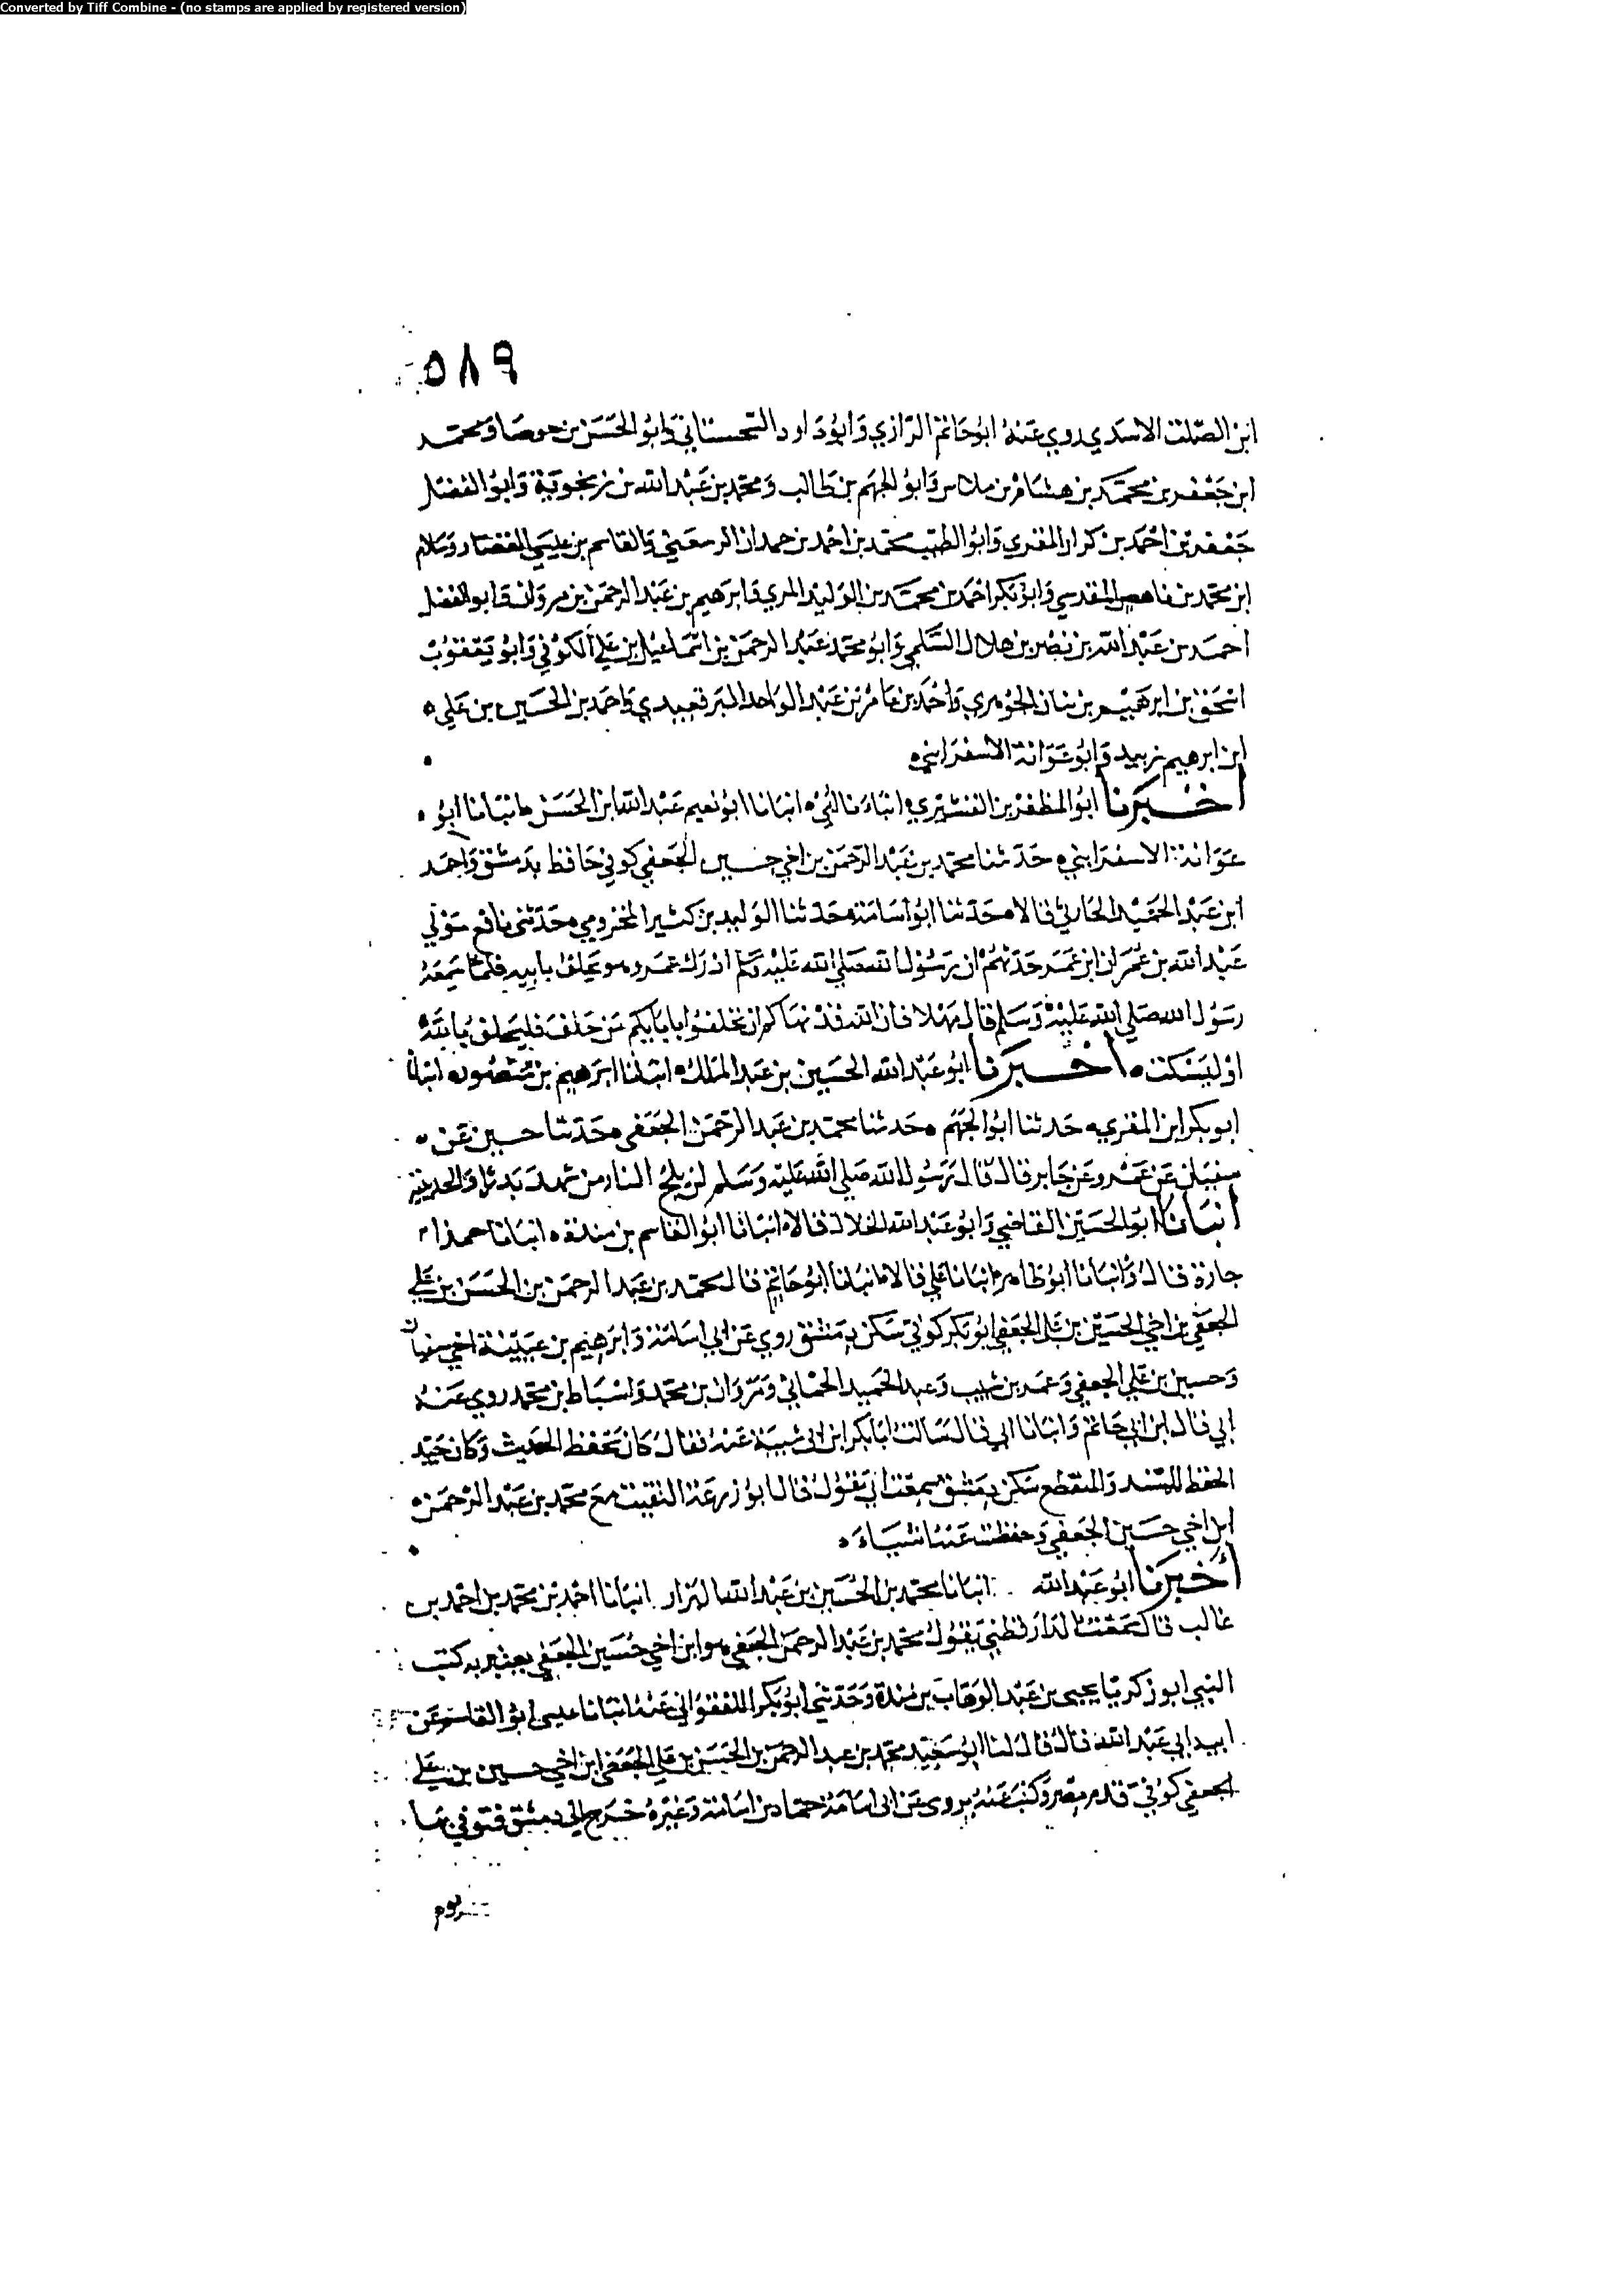 Converted by Tiff Combine - (no stamps are applied by registered version)
٥٨٩
ابن الصلت الاسدي روي عنه ابو حاتم الرازي وابو داود السجستاني وابو الحسن بن جوصا ومحمد
ابن جعفر بن محمد بن هشام بن ملاس وابو الجهم بن طالب ومحمد بن عبد الله بن زنجوية وابو الفضل
جعفر بن احمد بن كرار المقري وابو الطيب محمد بن احمد بن حمدان الرسعني والقاسم بن عيسي القصار وسلام
ابن محمد بن ناهض المقدسي وابو بكر احمد بن محمد بن الوليد المري وابرهيم بن عبد الرحمن بن مروان وابو الفضل
احمد بن عبد الله بن نصر بن هلال السلمي وابو محمد عبد الرحمن بن اسماعيل بن علي الكوفي وابو يعقوب
اسحق بن ابرهيم بن بنان الجوهري واحمد بن عامر بن عبد الواحد البرقعيدي واحمد بن الحسين بن علي
ابن ابرهيم زبيد وابو عوانة الاسفرايني
اخبرنا ابو المظفر بن القشيري انباءنا ابي انبانا ابو نعيم عبد الله ابن الحسن انبانا ابو
عوانة الاسفرايني حدثنا محمد بن عبد الرحمن بن اخي حسين الجعفي كوفي حافظ بدمشق واحمد
ابن عبد الحميد الحارثي قالا حدثنا ابو اسامة حدثنا الوليد بن كثير المخزومي حدثني نافع مولي
عبد الله بن عمر ان ابن عمر حدثهم ان رسول الله صلي الله عليه وسلم ادرك عمر وهو يحلف بابيه فلما سمعه
رسول الله صلي الله عليه وسلم قال مهلا فان الله قد نهاكم ان تحلفوا بابايكم من حلف فليحلف بالله
او ليسكت اخبرنا ابو عبد الله الحسين بن عبد الملك انبانا ابرهيم بن منصور انبانا
ابو بكر ابن المقري حدثنا ابو الجهم حدثنا محمد بن عبد الرحمن الجعفي حدثنا حسين عن
سفيان عن عمرو عن جابر قال قال رسول الله صلي الله عليه وسلم لن يلج النار من شهد بدرا والحديبية
انبانا ابو الحسين القاضي وابو عبد الله الخلال قالا انبانا ابو القاسم بن مندة انبانا حمد ا
جازة قال وانبانا ابو طاهر انبانا علي قالا انبانا ابو حاتم قال محمد بن عبد الرحمن بن الحسن بن علي
الجعفي بن اخي الحسين بن علي الجعفي ابو بكر كوفي سكن دمشق روي عن ابي اسامة وابرهيم بن عيينة اخي سفيان
وحسين بن علي الجعفي وعمر بن شبيب وعبد الحميد الحماني ومروان بن محمد واسباط بن محمد روي عنه
ابي قال ابن ابي حاتم وانبانا ابي قال سالت ابا بكر ابن ابي شيبة عنه فقال كان يحفظ الحديث وكان جيد
الحفظ للمسند والمنقطع سكن دمشق سمعت ابي يقول قال ابو زرعة التقيت مع محمد بن عبد الرحمن
ابن اخي حسين الجعفي وحفظت عنه اشياء
اخبرنا ابو عبد الله انبانا محمد بن الحسين بن عبد الله البزار انبانا احمد بن محمد بن احمد بن
غالب قال سمعت الدارقطني يقول محمد بن عبد الرحمن الجعفي هو ابن اخي حسين الجعفي يعتبر به كتب
الي ابو زكريا يحيى بن عبد الوهاب بن مندة وحدثني ابو بكر اللفتواني عنه انبانا عمي ابو القاسم عن
ابيه ابي عبد الله قال قال لنا ابو سعيد محمد بن عبد الرحمن بن الحسن بن علي الجعفي ابن اخي حسين بن علي
الجعفي كوفي قدم مصر وكتب عنه يروى عن ابي اسامة حماد بن اسامة وغيره خرج الي دمشق فتوفي بها
يوم